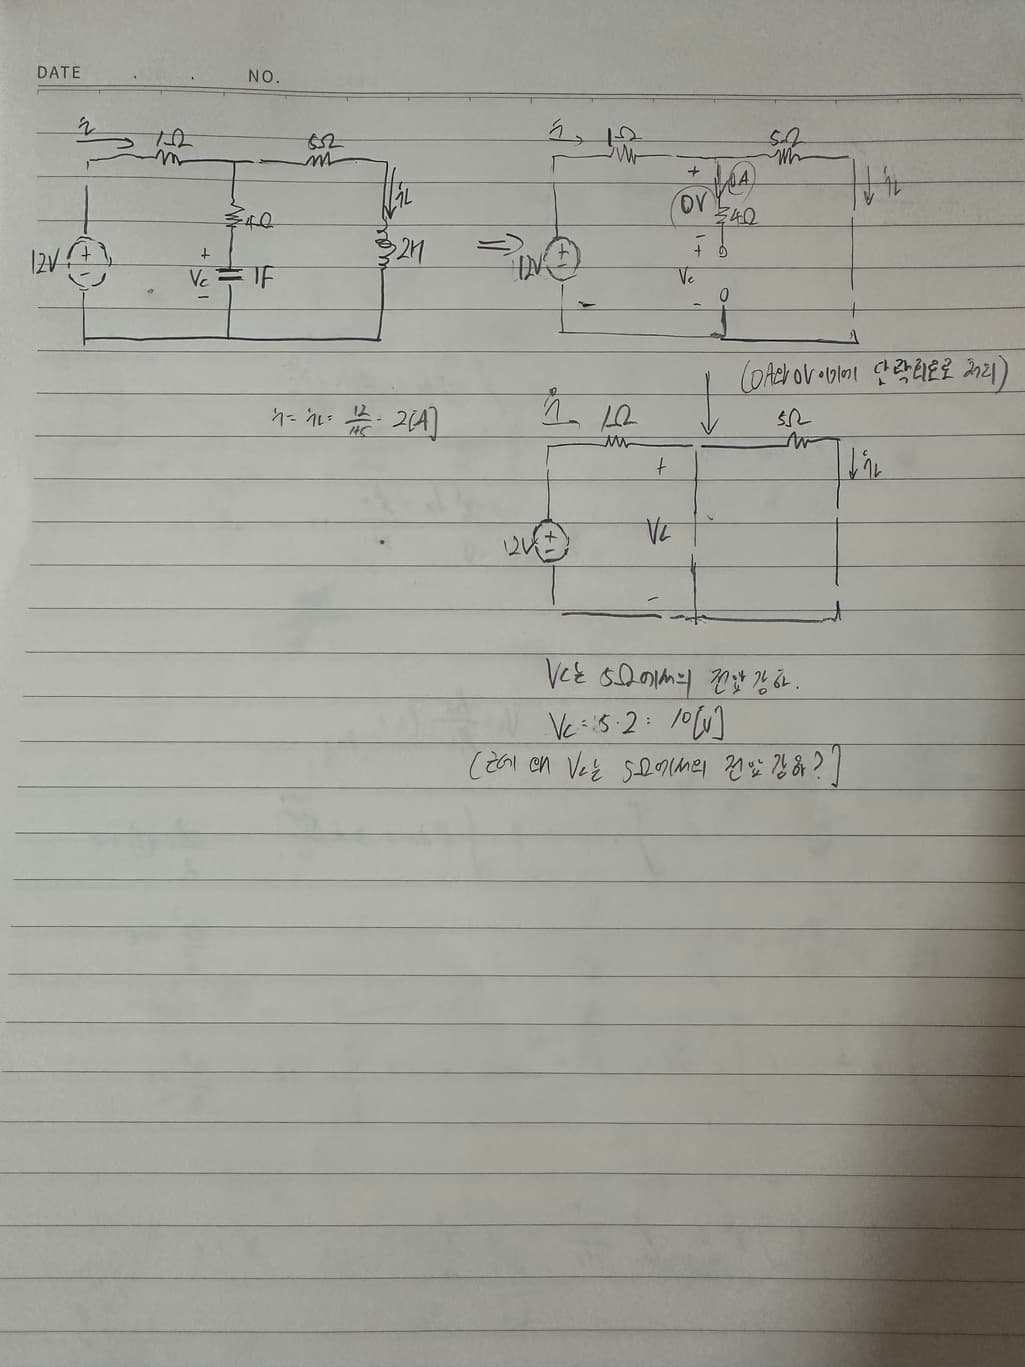 DATE . . NO.
i 1Ω 5Ω
iL
4Ω
12V + - + Vc - 1F 2H
⇒
i 1Ω 5Ω
+ 0V - 0A 4Ω iL
12V + - + Vc -
(0A와 0V 이기에 단락회로로 처리)
i = iL = 12/1+5 = 2[A]
i 1Ω 5Ω
+ iL
12V + - Vc
-
Vc는 5Ω에서의 전압강하.
Vc = 5·2 = 10[V]
(근데 왜 Vc는 5Ω에서의 전압강하?]